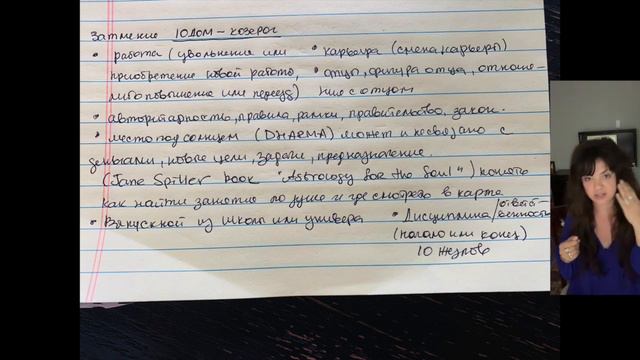 Затмение 10 дом – козерог
• работа (увольнение или • карьера (смена карьеры)
приобретение новой работы, • отец, фигура отца, отноше-
либо повышение или переезд) ние с отцом
• авторитарность, правила, рамки, правительство, закон.
• место под солнцем (DHARMA) может и не связано с
деньгами, новые цели, задачи, предназначение.
(Jane Spiller book "Astrology for the Soul") понять
как найти занятие по душе и где смотреть в карте
• Выпускной из школы или универа • Дисциплина/ответств-
енность
(начало или конец)
10 жезлов